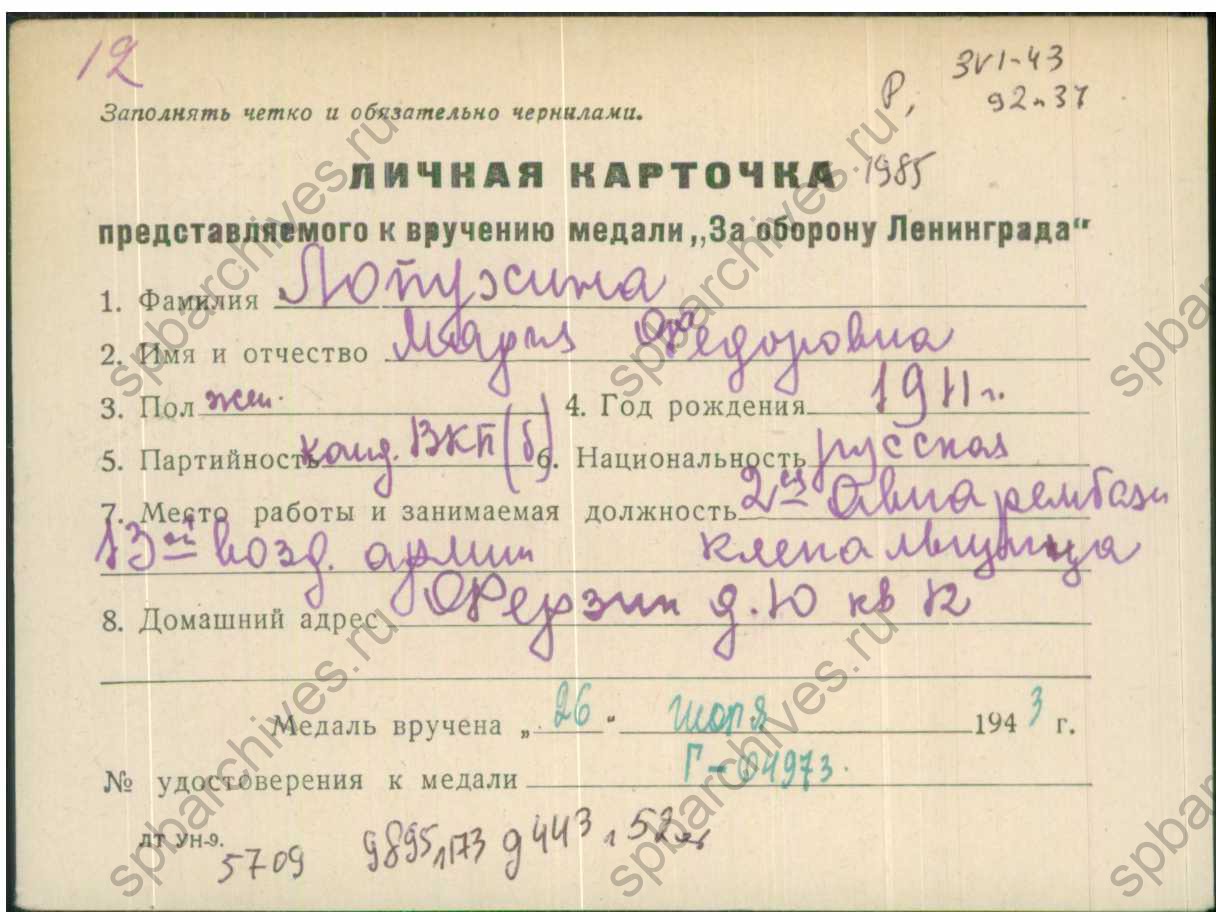 12
3VI-43
Р, 92л37
Заполнять четко и обязательно чернилами.
ЛИЧНАЯ КАРТОЧКА 1985
представляемого к вручению медали „За оборону Ленинграда“
1. Фамилия Лопухина
2. Имя и отчество Мария Федоровна
3. Пол жен. 4. Год рождения 1911 г.
5. Партийность канд. ВКП(б) 6. Национальность русская
7. Место работы и занимаемая должность 2ая Авиарембазы
13ой возд. армии клепальщица
8. Домашний адрес д. 10 кв 12
Медаль вручена „26“ июля 1943 г.
№ удостоверения к медали Г-04973.
ЛТ УН-9.
5709 9895 д 443 л 52
spbarchives.ru